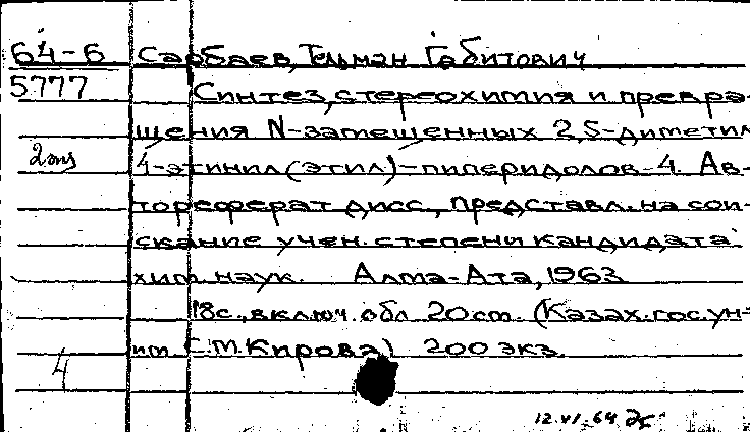 64-6 Сарбаев, Тельман Габитович
5777 Синтез, стереохимия и превра-
щения N-замещенных 2,5-диметил
2 экз 4-этинил(этил)-пиперидолов-4. Ав-
тореферат дисс., представл. на сои-
скание учен. степени кандидата
хим. наук. Алма-Ата, 1963
18с., включ. обл. 20см. (Казах. гос. ун-
им. С.М. Кирова) 200 экз.
4
12.VI.64